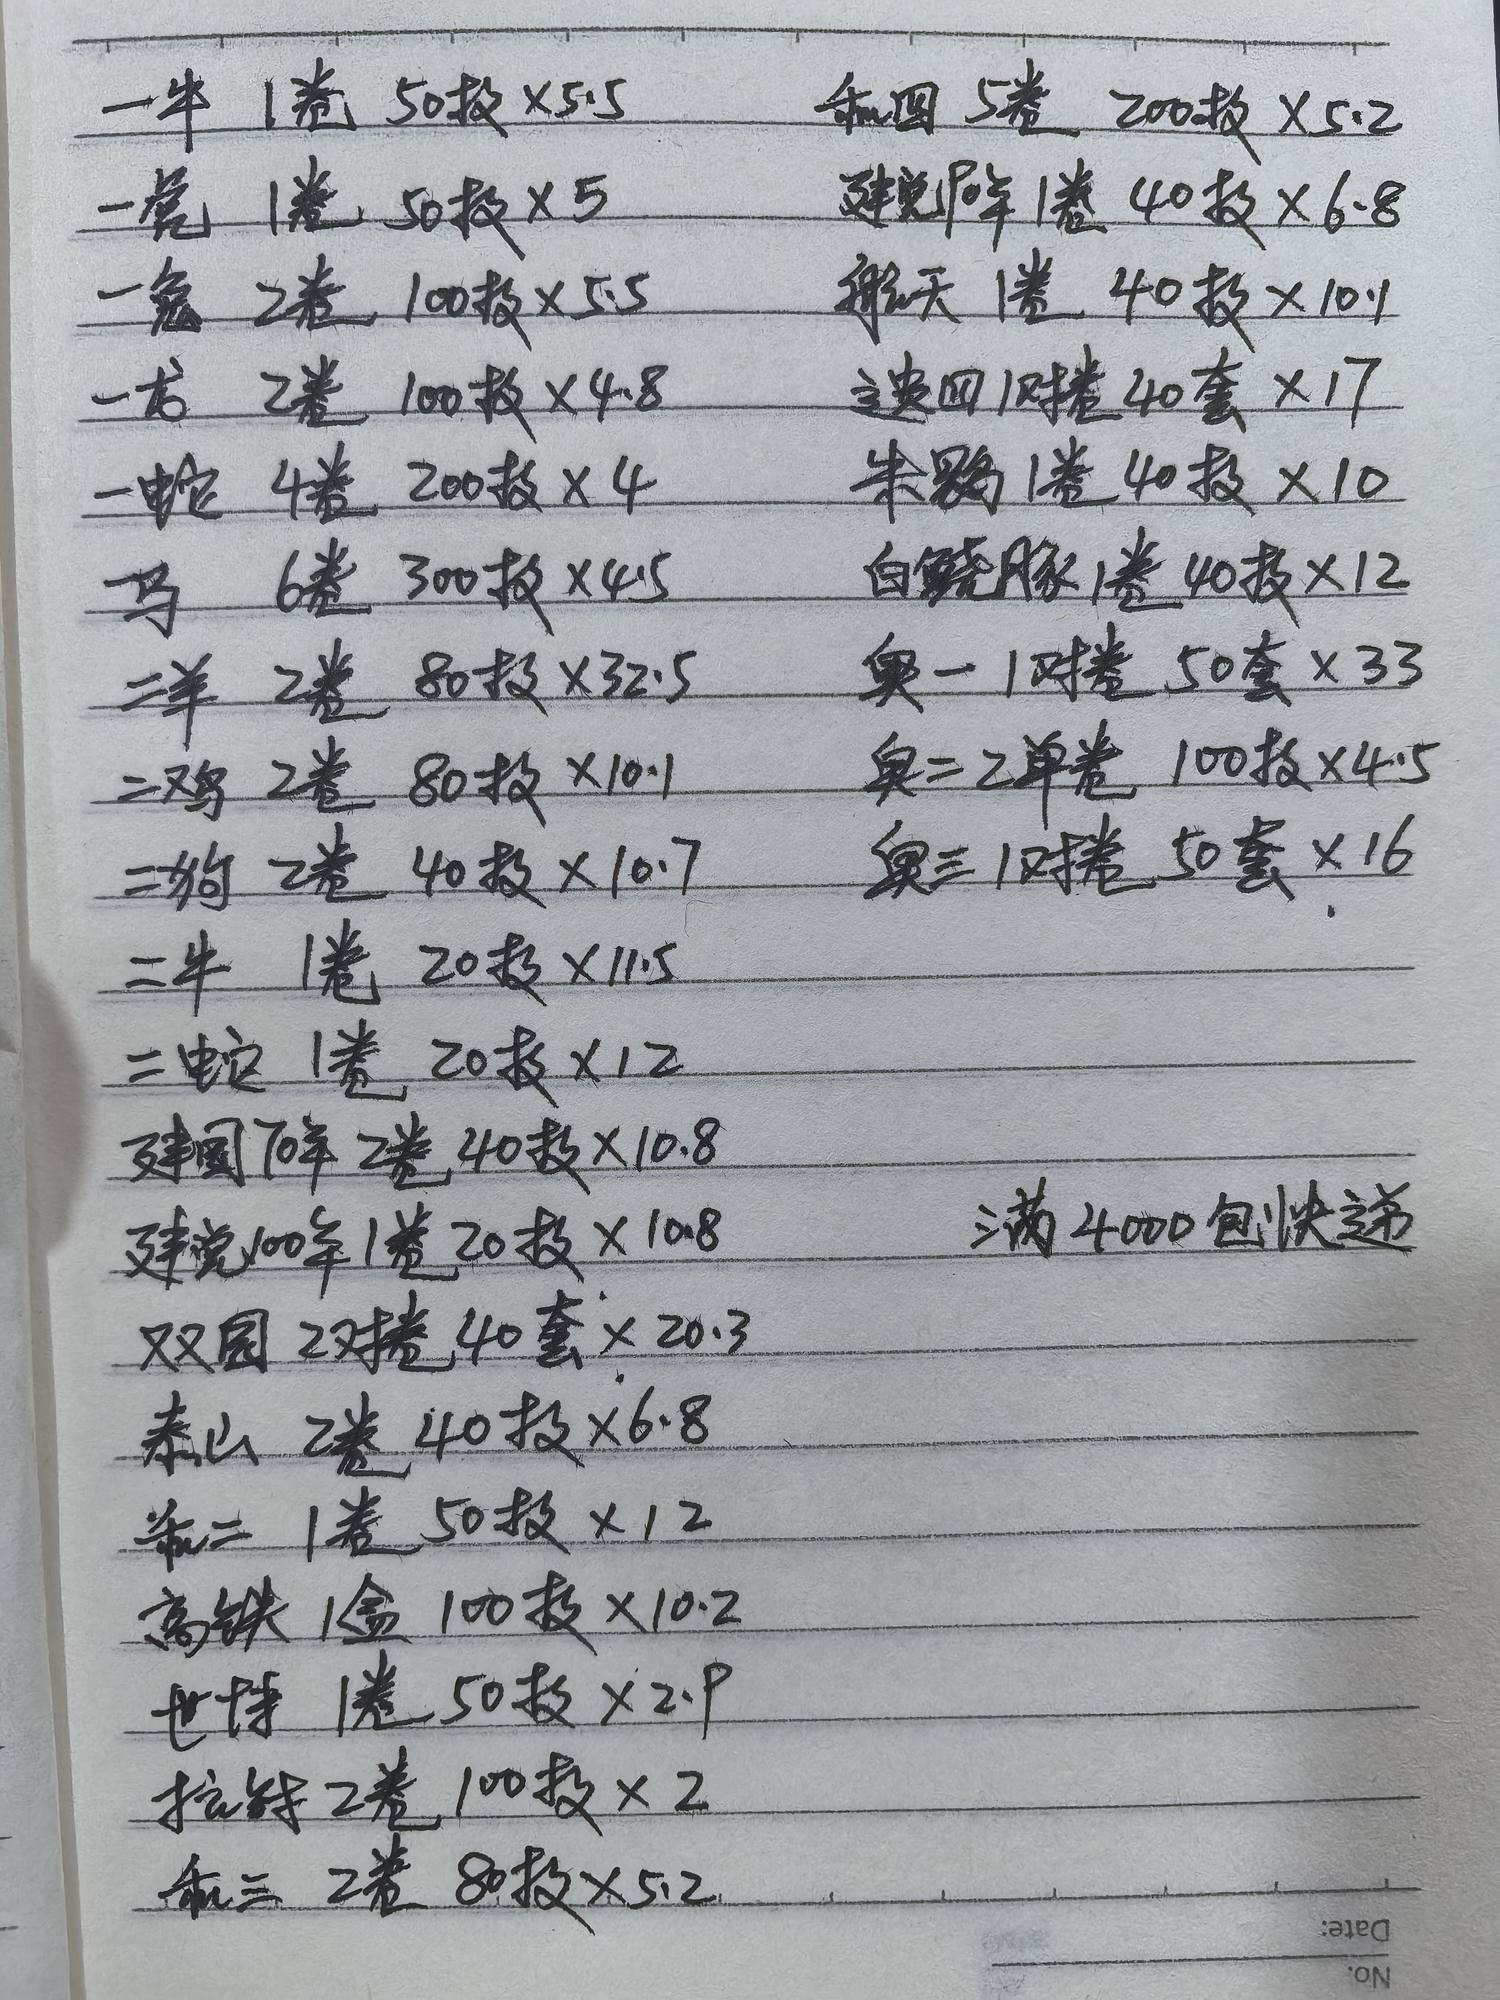 一牛 1卷 50枚×5.5
一虎 1卷 50枚×5
一兔 2卷 100枚×5.5
一龙 2卷 100枚×4.8
一蛇 4卷 200枚×4
一马 6卷 300枚×4.5
二羊 2卷 80枚×32.5
二鸡 2卷 80枚×10.1
二狗 2卷 40枚×10.7
二牛 1卷 20枚×11.5
二蛇 1卷 20枚×12
建国70年 2卷 40枚×10.8
建党100年 1卷 20枚×10.8
双园 2对捲 40套×20.3
泰山 2卷 40枚×6.8
和二 1卷 50枚×12
高铁 1盒 100枚×10.2
世博 1卷 50枚×2.9
抗战 2卷 100枚×2
和三 2卷 80枚×5.2
和四 5卷 200枚×5.2
建党90年 1卷 40枚×6.8
航天 1卷 40枚×10.1
造四 1对捲 40套×17
朱鹮 1卷 40枚×10
白鱀豚 1卷 40枚×12
奥一 1对捲 50套×33
奥二 2单卷 100枚×4.5
奥三 1对捲 50套×16
满4000包快递
Date:
No.